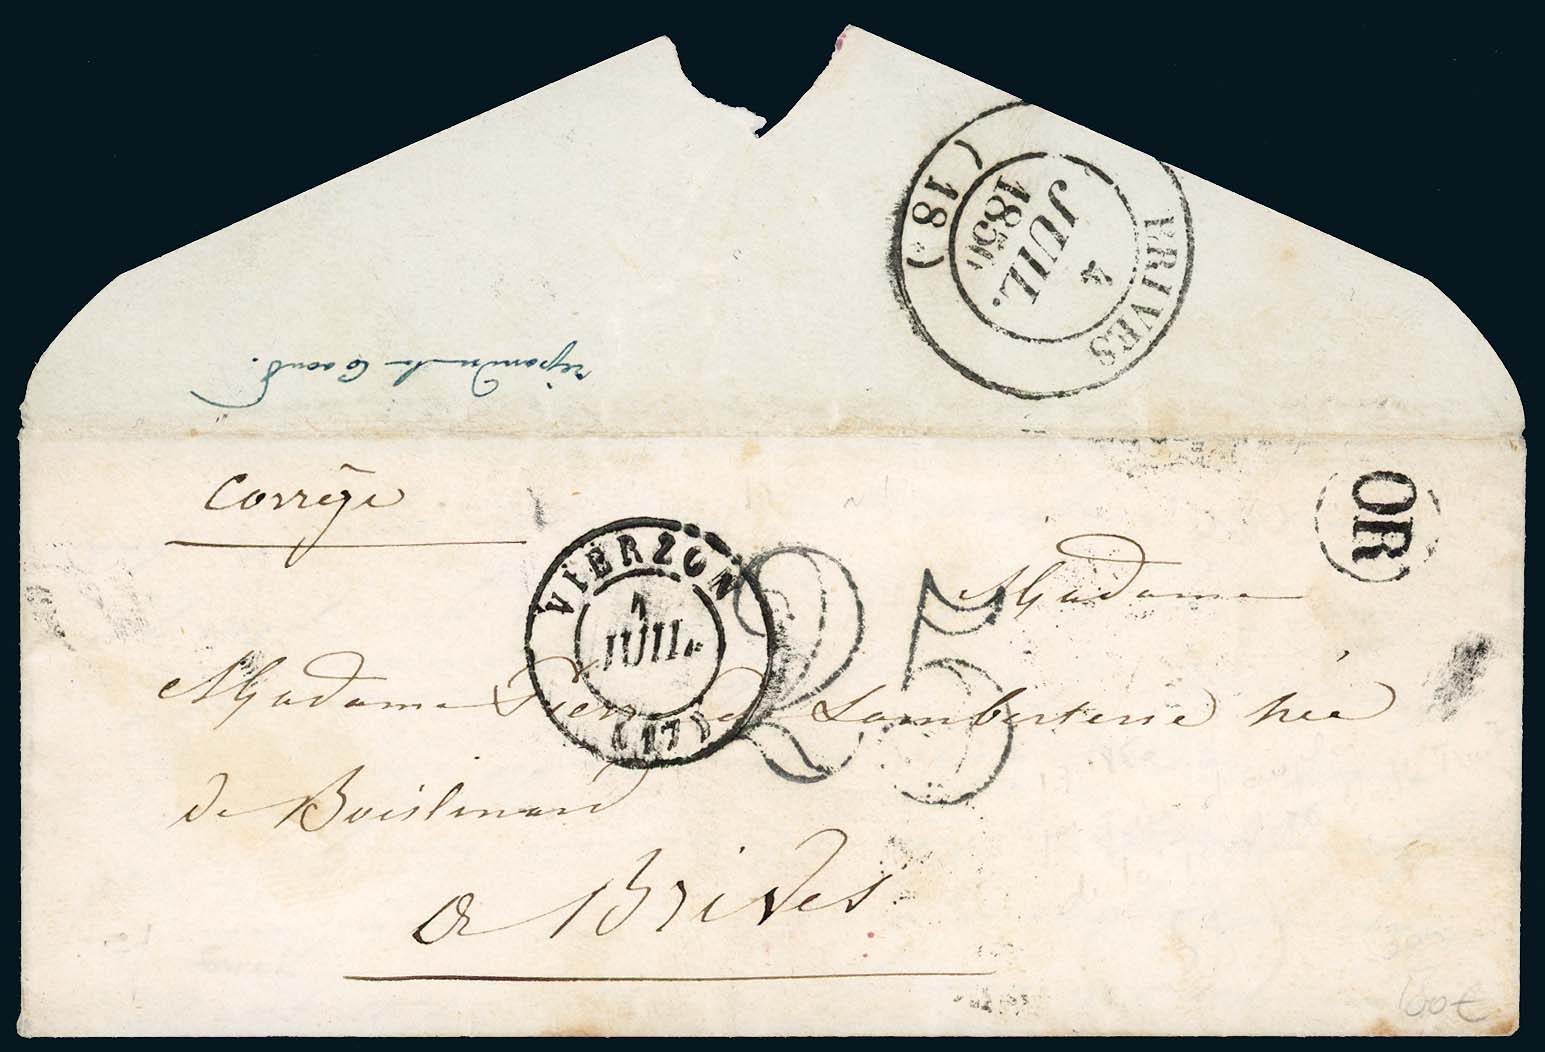 BRIVES
4
JUIL.
1850
(18)
répondu le 6 aout.
Corrèze
OR
VIERZON
1
JUIL.
(17)
25
Madame
Madame Pierre de Lamberterie née
de Boislinard
à Brives
100€